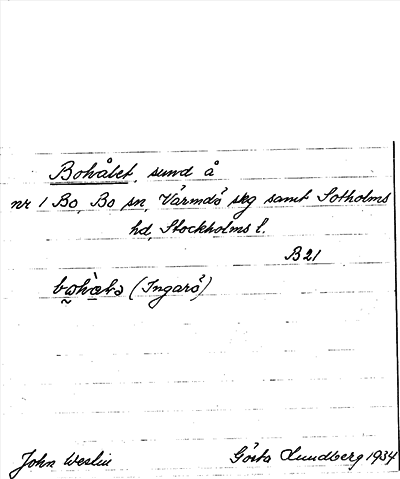 Bohålet, sund å
nr 1 Bo, Bo sn, Värmdö skg samt Sotholms
hd, Stockholms l.
B21
(Ingarö)
John Weslin Gösta Lundberg 1934